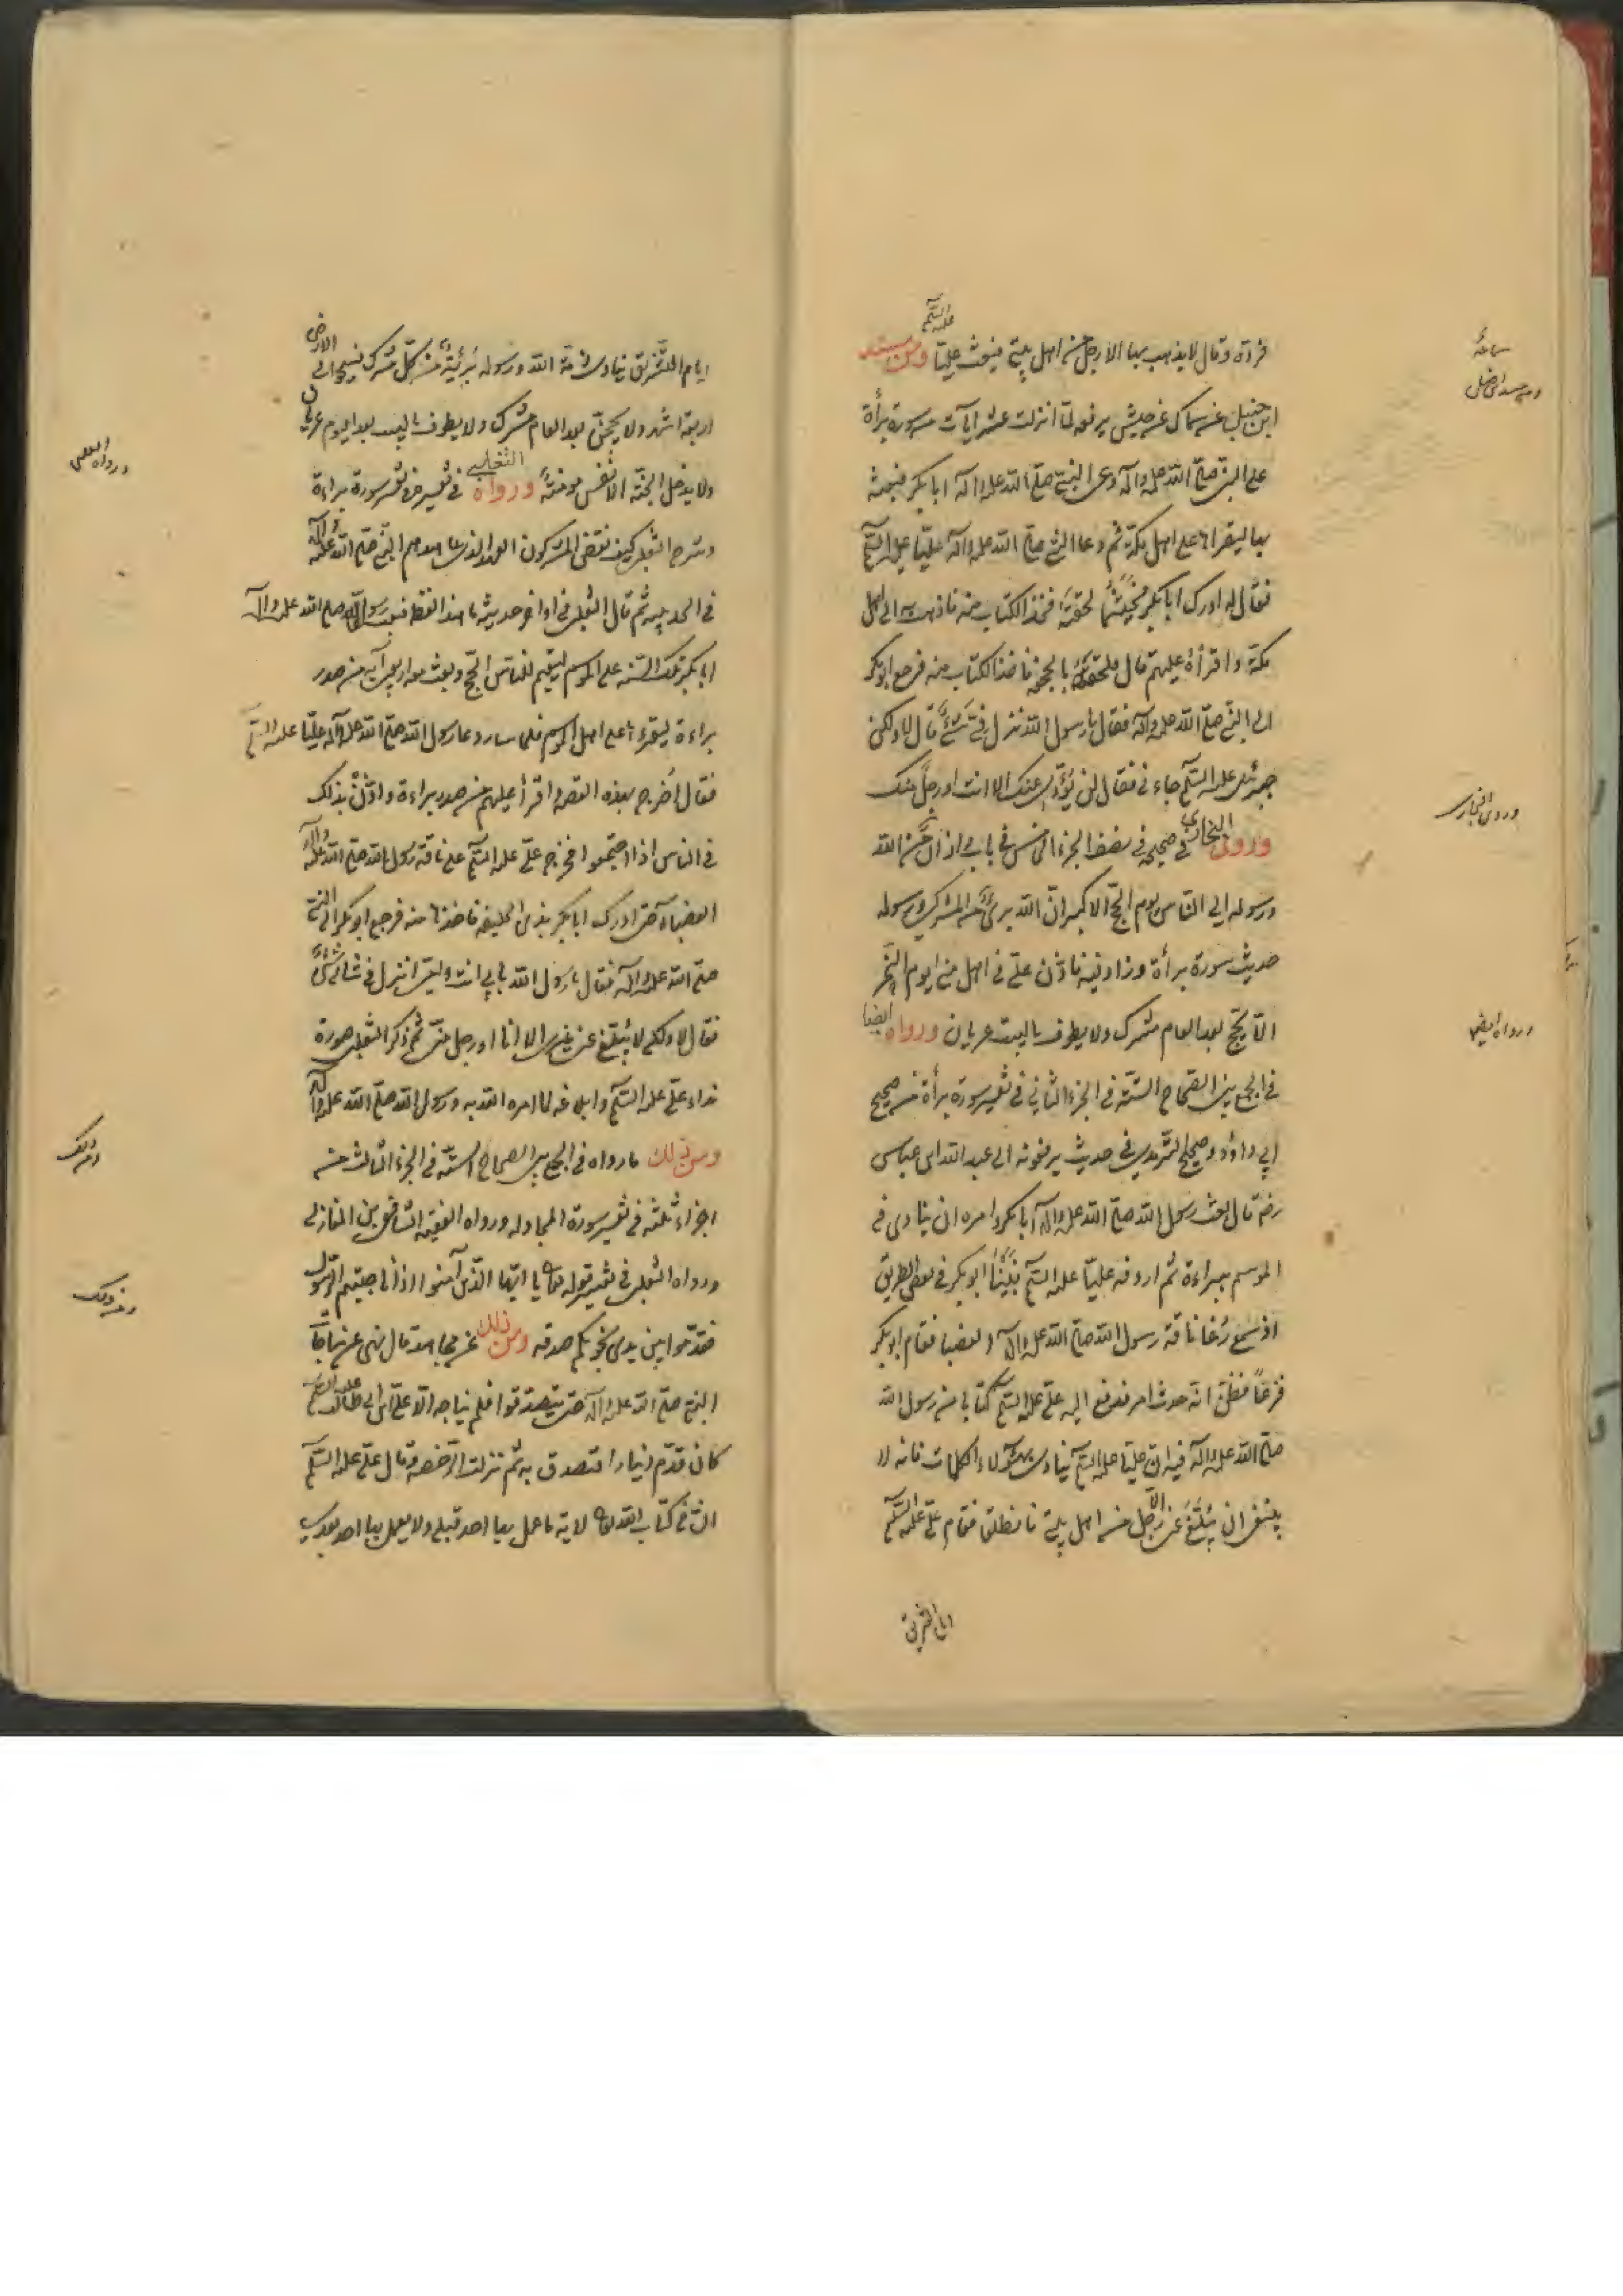 فرده وقال لا يذهب بها الا رجل من اهل بيتي فبعث عليا عليه السلم ومن مسند
ابن حنبل عن سماك عن حبيش يرفعه لما انزلت عشر آيات من سورة براة
على النبي صلى الله عليه وآله دعى النبي صلى الله عليه وآله ابا بكر فبعثه
بها ليقراها على اهل مكة ثم دعا النبي صلى الله عليه وآله عليا عليه السلم
فقال له ادرك ابا بكر فحيثما لحقته فخذ الكتاب منه فاذهب به الى اهل
مكة واقرأه عليهم قال فلحقه بالجحفة فاخذ الكتاب منه فرجع ابو بكر
الى النبي صلى الله عليه وآله فقال يا رسول الله نزل في شيء قال لا ولكن
جبرئيل عليه السلم جاءني فقال لن يؤدي عنك الا انت او رجل منك
وروى البخاري في صحيحه في نصف الجزء الخامس في باب واذان من الله
ورسوله الى الناس يوم الحج الاكبر ان الله بريء من المشركين ورسوله
حديث سورة براة وزاد فيه فاذن علي في اهل منى يوم النحر
الا يحج بعد العام مشرك ولا يطوف بالبيت عريان ورواه ايضا
في الجمع بين الصحاح الستة في الجزء الثاني في تفسير سورة براة من صحيح
ابي داؤد وصحيح الترمذي في حديث يرفعونه الى عبد الله ابن عباس
رضه قال بعث رسول الله صلى الله عليه وآله ابا بكر وامره ان ينادي في
الموسم ببراءة ثم اردفه عليا عليه السلم فبينا ابو بكر في بعض الطريق
اذ سمع رغا ناقة رسول الله صلى الله عليه وآله العضبا فقام ابو بكر
فزعا فظن انه حدث امر فدفع اليه علي عليه السلم كتابا من رسول الله
صلى الله عليه وآله فيه ان عليا عليه السلم ينادي بهؤلاء الكلمات فانه لا
ينبغي ان يبلغ عني الا رجل من اهل بيتي فانطلقا فقام علي عليه السلم
ايام التشريق
وروى البخاري
ورواه ايضا
ايام التشريق ينادي ذمة الله ورسوله بريئة من كل مشرك فسيحوا في الارض
اربعة اشهر ولا يحجن بعد العام مشرك ولا يطوف بالبيت بعد اليوم عريان
ولا يدخل الجنة الا نفس مؤمنة ورواه الثعلبي في تفسيره في تفسير سورة براءة
وشرح الثعلبي كيف نقض المشركون العهد الذي عاهدهم النبي صلى الله عليه وآله
في الحديبية ثم قال الثعلبي في اواخر حديثه ما هذا لفظه فبعث رسول الله صلى الله عليه وآله
ابا بكر تلك السنة على الموسم ليقيم للناس الحج وبعث معه اربعين آية من صدر
براءة ليقرءها على اهل الموسم فلما سار دعا رسول الله صلى الله عليه وآله عليا عليه السلم
فقال اخرج بهذه القصة اقرأ عليهم من صدر براءة واذن بذلك
في الناس اذا اجتمعوا فخرج علي عليه السلم على ناقة رسول الله صلى الله عليه وآله
العضباء حتى ادرك ابا بكر بذي الحليفة فاخذها منه فرجع ابو بكر الى النبي
صلى الله عليه وآله فقال يا رسول الله بابي انت وامي انزل في شاني شيء
فقال لا ولكن لا يبلغ عن غيري الا انا او رجل مني ثم ذكر الثعلبي صورة
نداء علي عليه السلم وابلاغه لما امره الله به ورسول الله صلى الله عليه وآله
ومن ذلك ما رواه في الجمع بين الصحاح الستة في الجزء الثالث من
اجزاء ثلثة في تفسير سورة المجادلة ورواه الفقيه الشافعي ابن المغازلي
ورواه الثعلبي في تفسير قوله تعالى يا ايها الذين آمنوا اذا ناجيتم الرسول
فقدموا بين يدي نجويكم صدقة ومن ذلك عن مجاهد قال نهى عن مناجاة
النبي صلى الله عليه وآله حتى يتصدقوا فلم يناجه الا علي ابن ابي طالب عليه السلم
كان قدم دينارا فتصدق به ثم نزلت الرخصة وقال علي عليه السلم
ان في كتاب الله تعالى لاية ما عمل بها احد قبلي ولا يعمل بها احد بعدي
ورواه الثعلبي
ومن ذلك
ومن ذلك